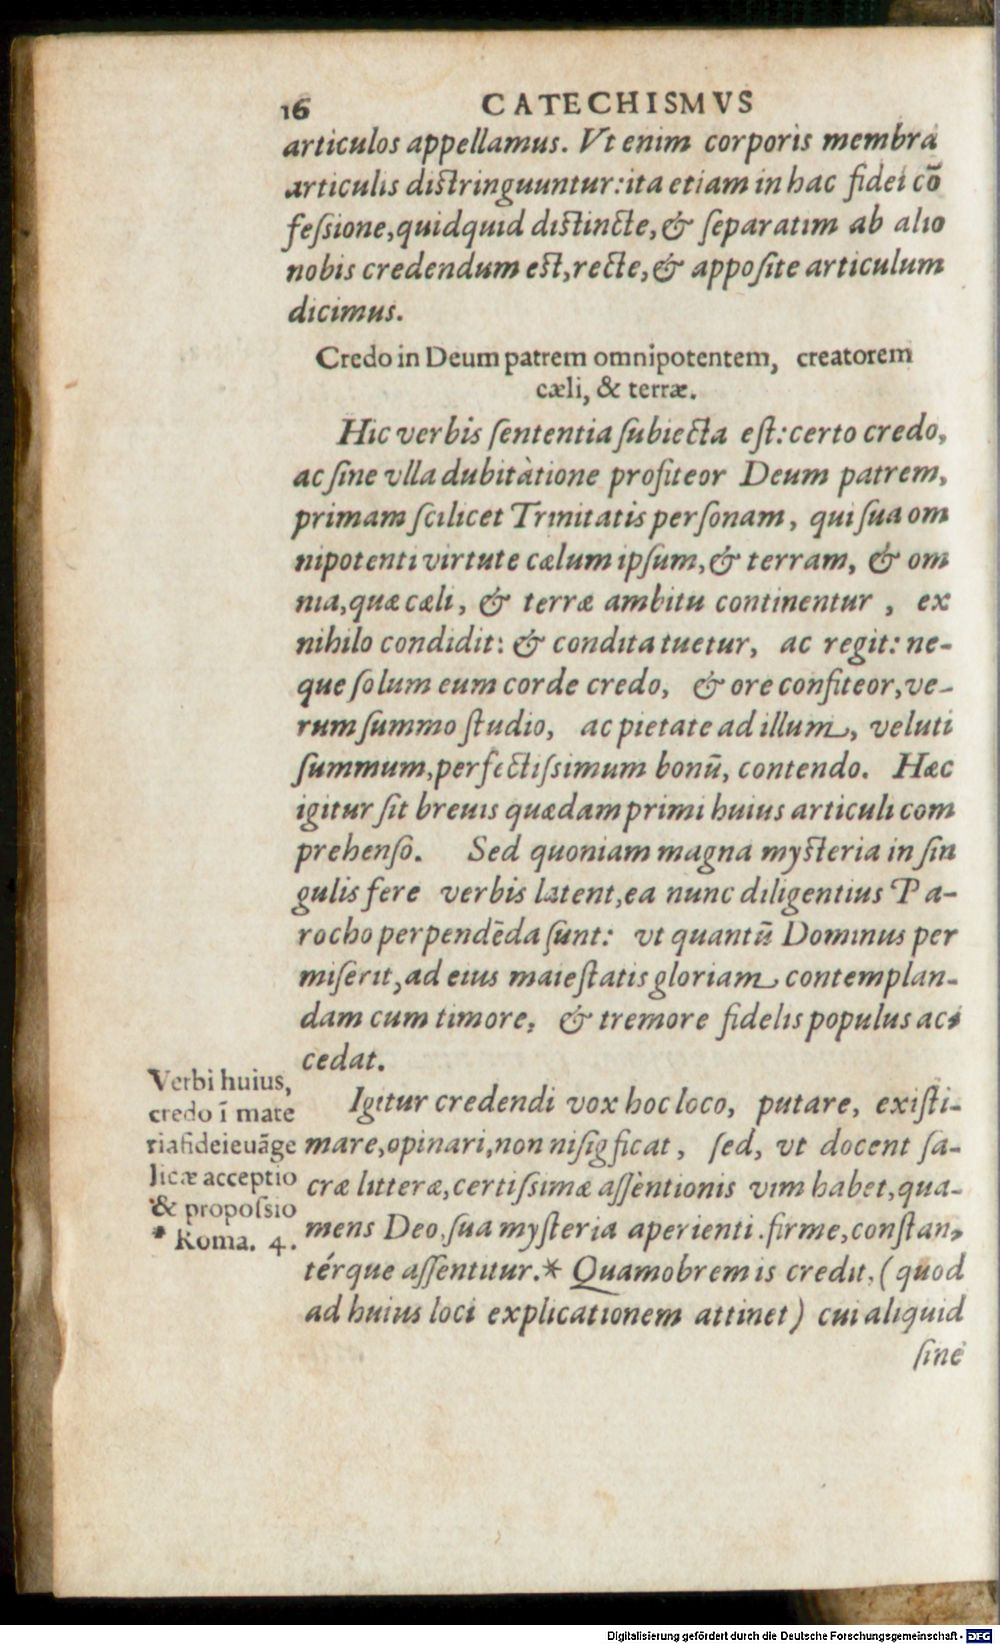 16 CATECHISMVS
articulos appellamus. Vt enim corporis membra
articulis distringuuntur: ita etiam in hac fidei cō
feſsione, quidquid distincte, & ſeparatim ab alio
nobis credendum est, recte, & appoſite articulum
dicimus.
Credo in Deum patrem omnipotentem, creatorem
cæli, & terræ.
Hic verbis ſententia ſubiecta eſt: certo credo,
ac ſine vlla dubitàtione profiteor Deum patrem,
primam ſcilicet Trinitatis perſonam, qui ſua om
nipotenti virtute cælum ipſum, & terram, & om
nia, quæ cæli, & terræ ambitu continentur, ex
nihilo condidit: & condita tuetur, ac regit: ne-
que ſolum eum corde credo, & ore confiteor, ve-
rum ſummo ſtudio, ac pietate ad illum, veluti
ſummum, perfectiſsimum bonū, contendo. Hæc
igitur ſit breuis quædam primi huius articuli com
prehenſo. Sed quoniam magna mysteria in ſin
gulis fere verbis latent, ea nunc diligentius Pa-
rocho perpendēda ſunt: vt quantū Dominus per
miſerit, ad eius maieſtatis gloriam contemplan-
dam cum timore, & tremore fidelis populus ac-
cedat.
Verbi huius,
credo ī mate
ria fidei euāge
licæ acceptio
& propoſsio
* Roma. 4.
Igitur credendi vox hoc loco, putare, exiſti-
mare, opinari, non niſigficat, ſed, vt docent ſa-
cræ litteræ, certiſsimæ aſſentionis vim habet, qua-
mens Deo, ſua myſteria aperienti. firme, conſtan-
térque aſſentitur.* Quamobrem is credit, (quod
ad huius loci explicationem attinet) cui aliquid
ſine
Digitalisierung gefördert durch die Deutsche Forschungsgemeinschaft - DFG